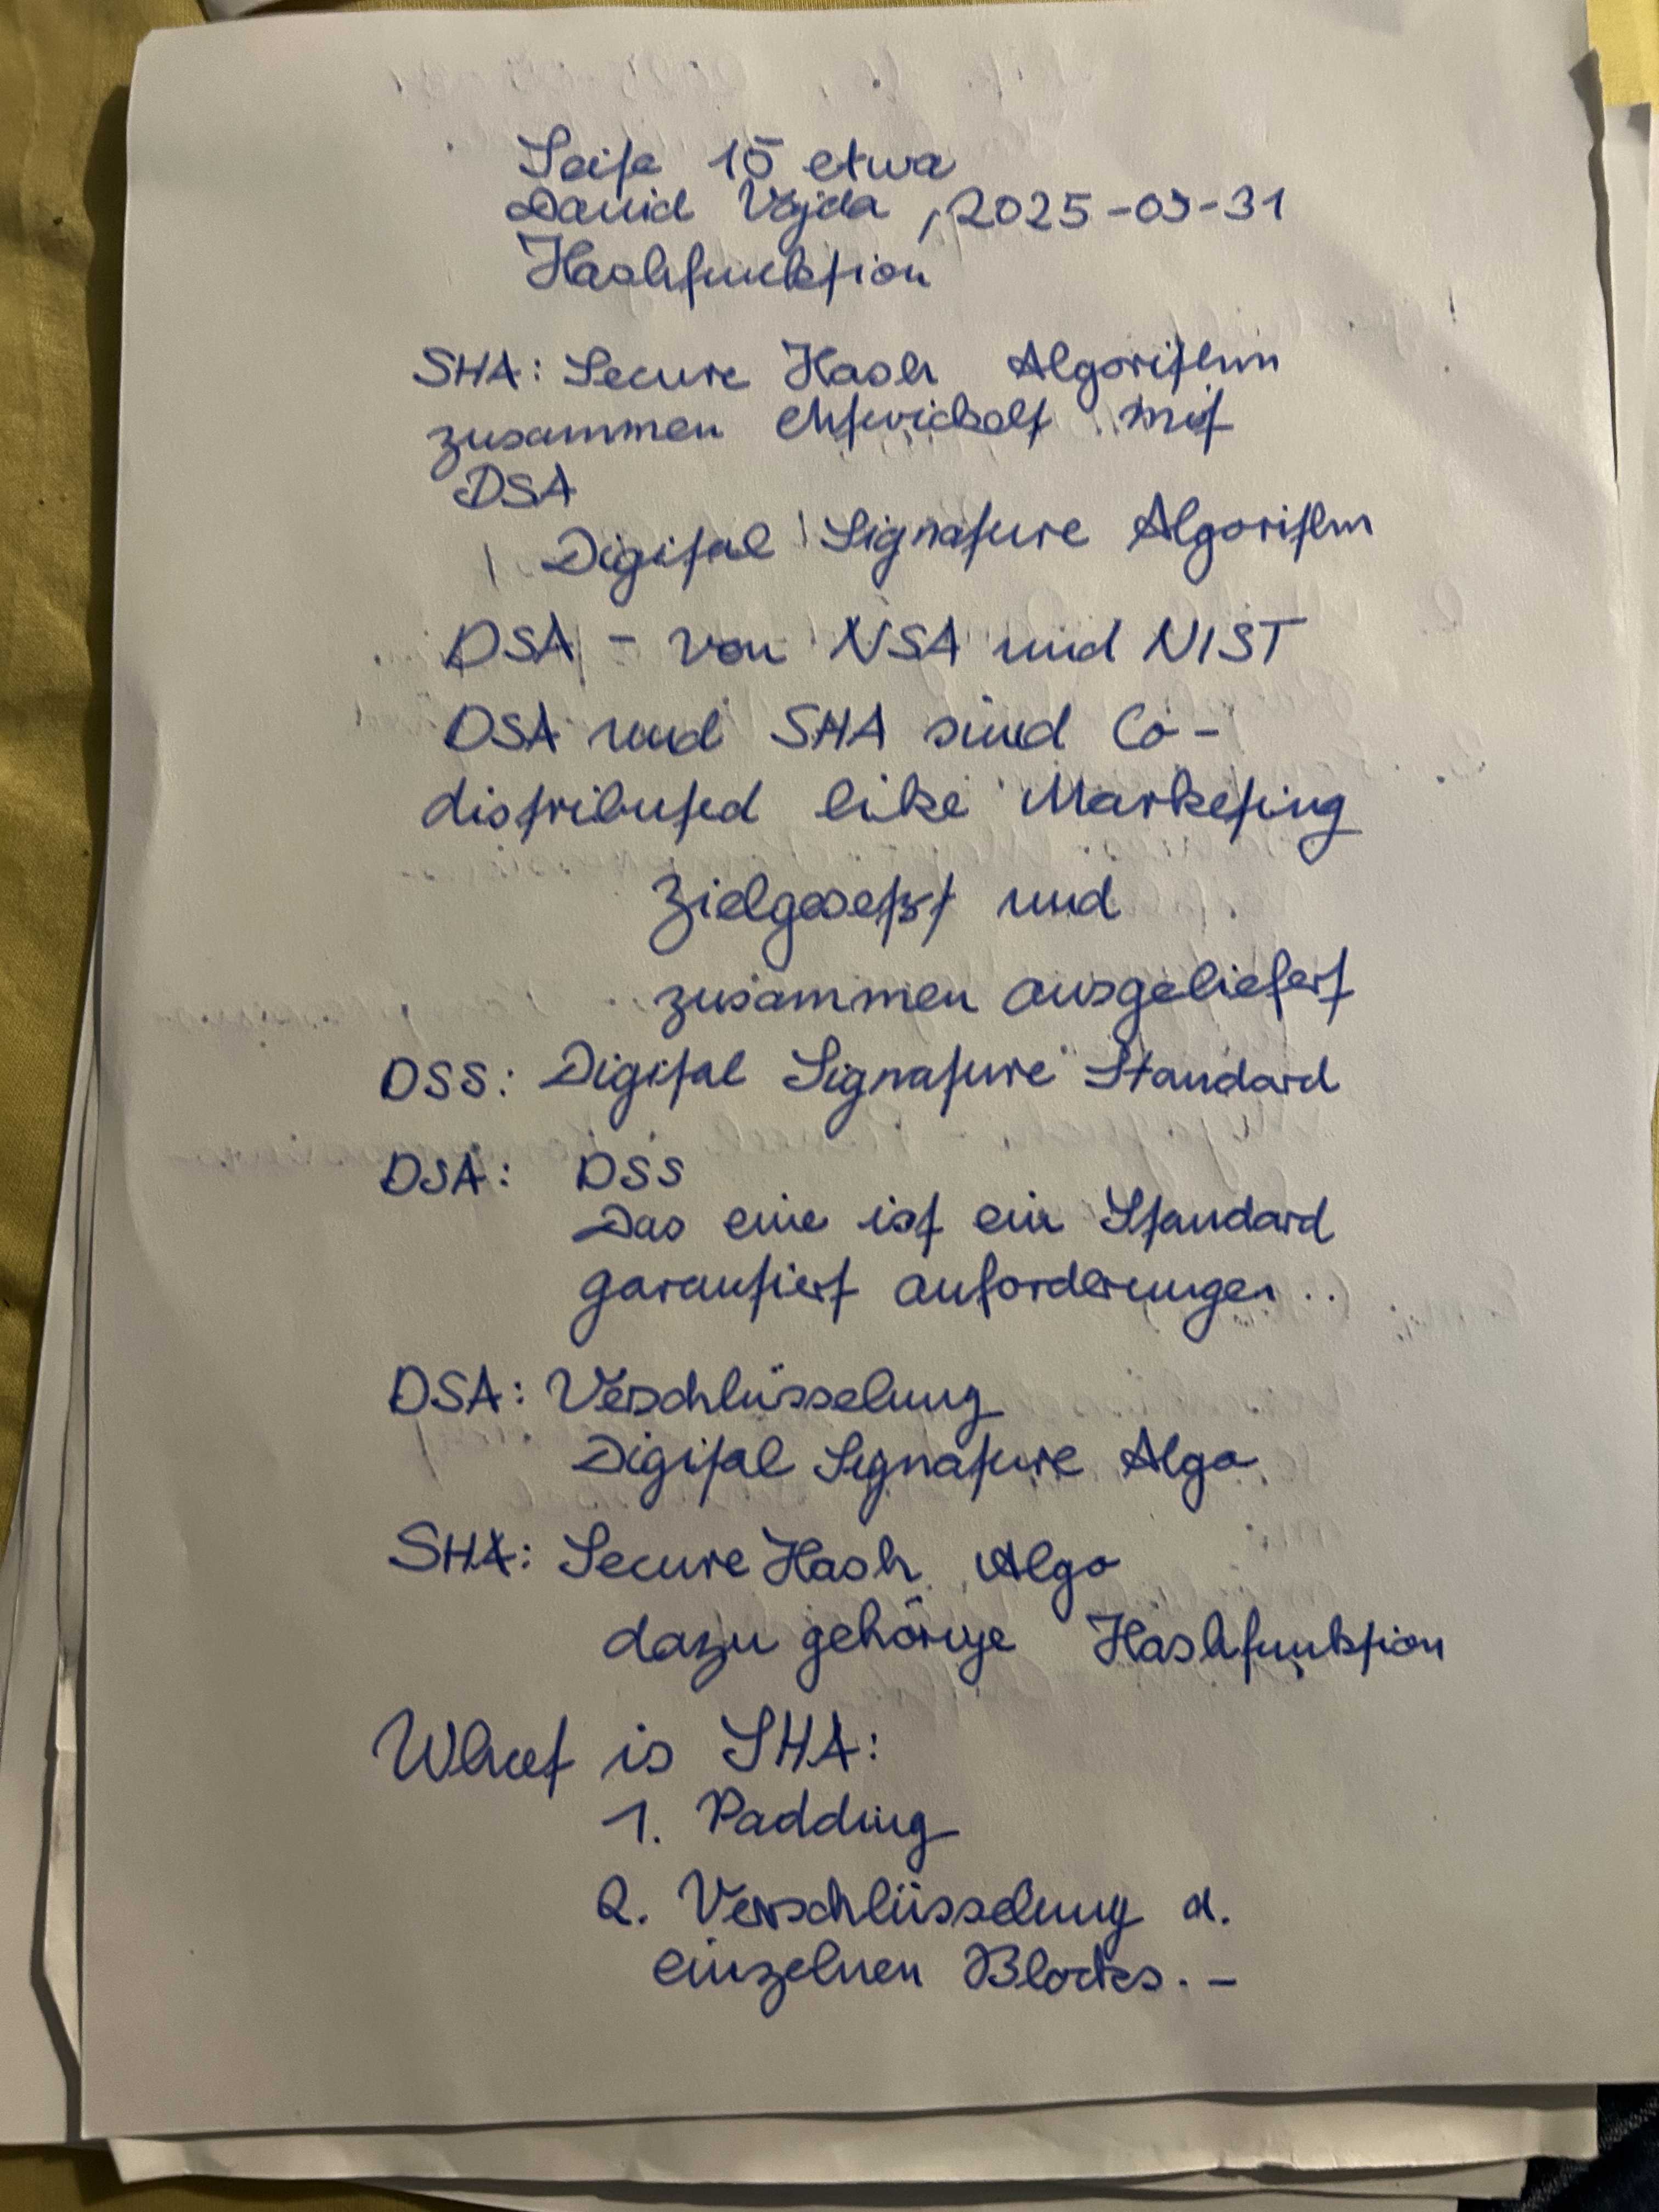 Seite 15 etwa
David Vajda, 2025-03-31
Hashfunktion
SHA: Secure Hash Algorithm
zusammen entwickelt mit
DSA
Digital Signature Algorithm
DSA - von NSA und NIST
DSA und SHA sind Co-
distributed like Marketing
Zielgesetzt und
zusammen ausgeliefert
DSS: Digital Signature Standard
DSA: DSS
Das eine ist ein Standard
garantiert anforderungen..
DSA: Verschlüsselung
Digital Signature Algo
SHA: Secure Hash Algo
dazu gehörige Hashfunktion
What is SHA:
1. Padding
2. Verschlüsselung d.
einzelnen Blocks.-